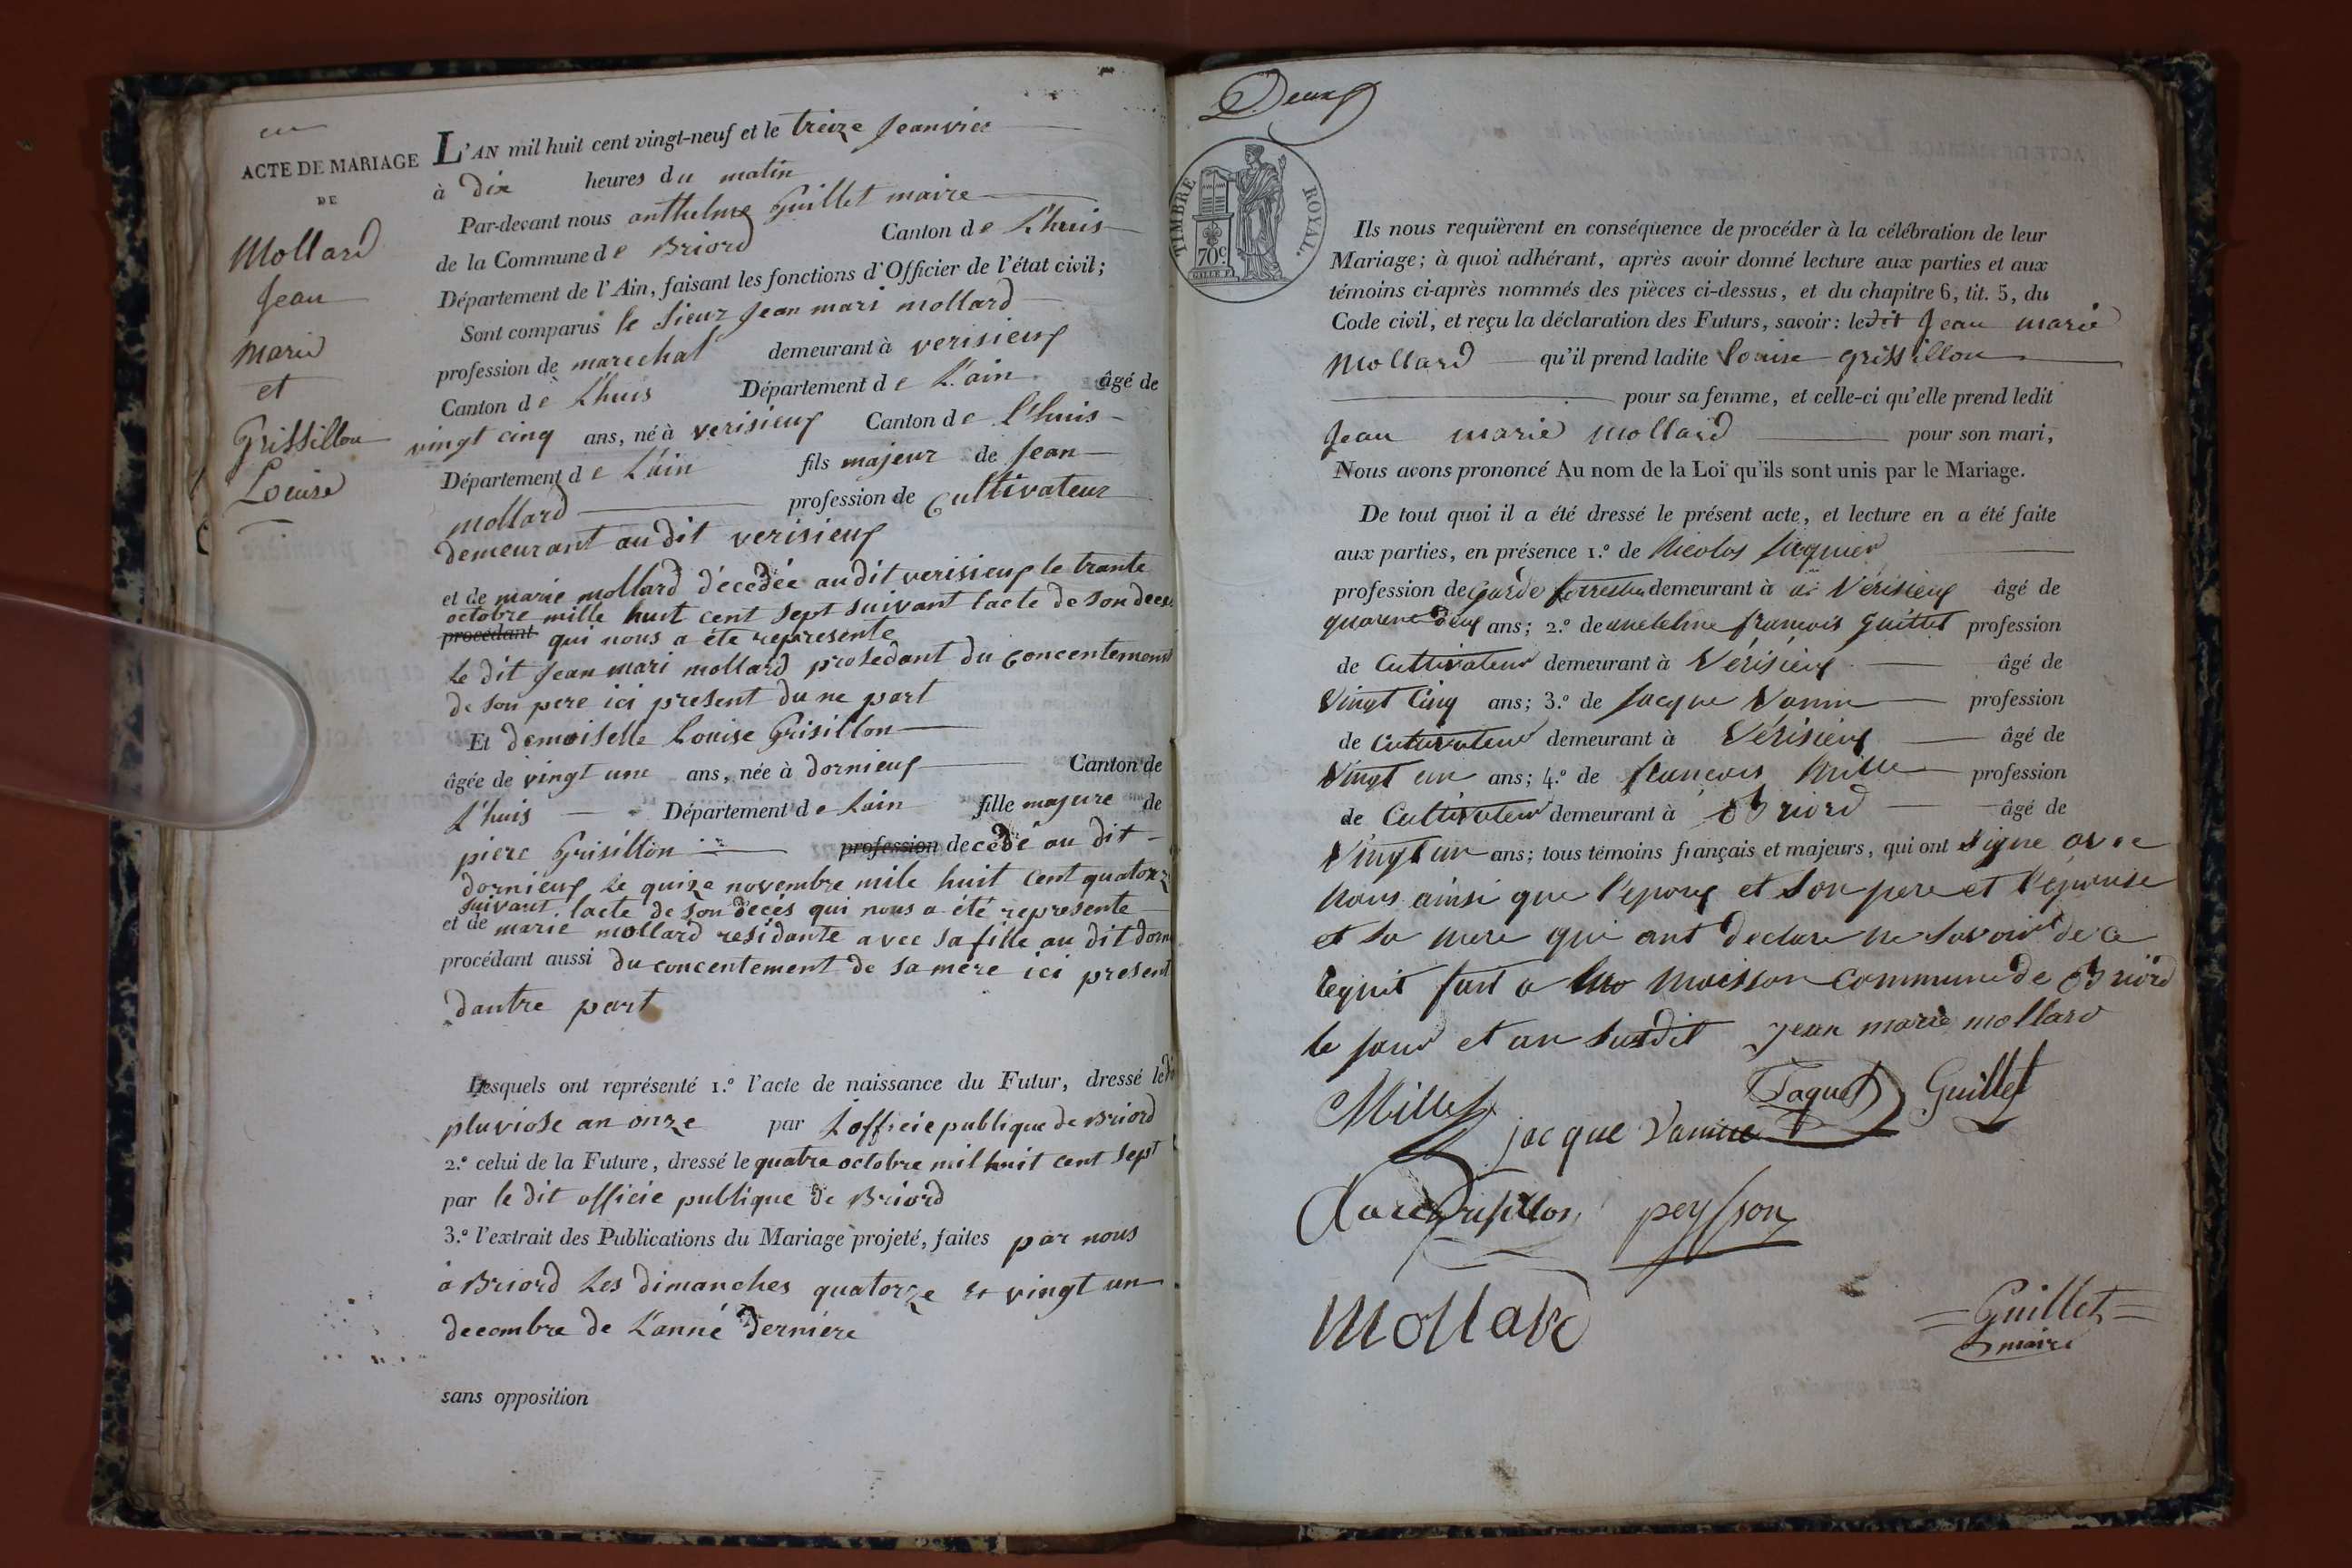 ACTE DE MARIAGE
DE
Mollard
Jean
Marie
et
Grissillon
Louise
L'AN mil huit cent vingt-neuf et le treize Jeanvier
à Dix heures du matin
Par-devant nous anthelme Guillet maire
de la Commune de Briord Canton de L'huis
Département de l'Ain, faisant les fonctions d'Officier de l'état civil;
Sont comparus le sieur Jean mari mollard
profession de marechal demeurant à verisieux
Canton de L'huis Département de L'ain âgé de
vingt cinq ans, né à verisieux Canton de l'huis
Département de L'ain fils majeur de Jean
mollard profession de Cultivateur
demeurant au dit verisieux
et de marie mollard décedée au dit verisieux le trante
octobre mille huit cent sept suivant lacte de son deces
procédant qui nous a éte representé
le dit Jean mari mollard prosedant du concentement
de son pere ici present du ne part
Et demoiselle Louise Grisillon
âgée de vingt une ans, née à dornieux Canton de
L'huis Département de Lain fille majeure de
piere Grisillon profession decedé au dit
dornieux le quize novembre mile huit cent quatorz
suivant lacte de son decés qui nous a été represente
et de marie mollard residante avec sa fille au dit dorn
procédant aussi du concentement de sa mère ici present
dautre part
Lesquels ont représenté 1.º l'acte de naissance du Futur, dressé le
pluviose an onze par Lofficie publique de Briord
2.º celui de la Future, dressé le quatre octobre mil huit cent sept
par le dit officie publique de Briord
3.º l'extrait des Publications du Mariage projeté, faites par nous
a Briord les dimanches quatorze et vingt un
decembre de L'anné derniére
sans opposition
Deux
TIMBRE ROYAL.
70c
Ils nous requièrent en conséquence de procéder à la célébration de leur
Mariage; à quoi adhérant, après avoir donné lecture aux parties et aux
témoins ci-après nommés des pièces ci-dessus, et du chapitre 6, tit. 5, du
Code civil, et reçu la déclaration des Futurs, savoir: ledit Jean marie
Mollard qu'il prend ladite louise grissillon
pour sa femme, et celle-ci qu'elle prend ledit
Jean marie Mollard pour son mari,
Nous avons prononcé Au nom de la Loi qu'ils sont unis par le Mariage.
De tout quoi il a été dressé le présent acte, et lecture en a été faite
aux parties, en présence 1.º de Nicolas
profession de garde demeurant à Vérisieux âgé de
ans; 2.º de francois guillet profession
de Cultivateur demeurant à Vérisieux âgé de
Vingt Cinq ans; 3.º de Jacque Vanin profession
de Cultivateur demeurant à Vérisieux âgé de
Vingt un ans; 4.º de francois profession
de Cultivateur demeurant à Briord âgé de
Vingt un ans; tous témoins français et majeurs, qui ont signe avec
Nous ainsi que l'epoux et son pere et l'epouse
et sa mere qui ont declare ne savoir de ce
requit fait a Maison Commune de Briord
le jour et an susdit Jean marie mollard
Millet Jaquet Guillet
jacque Vanin
Grisillon peysson
Mollard
Guillet
maire